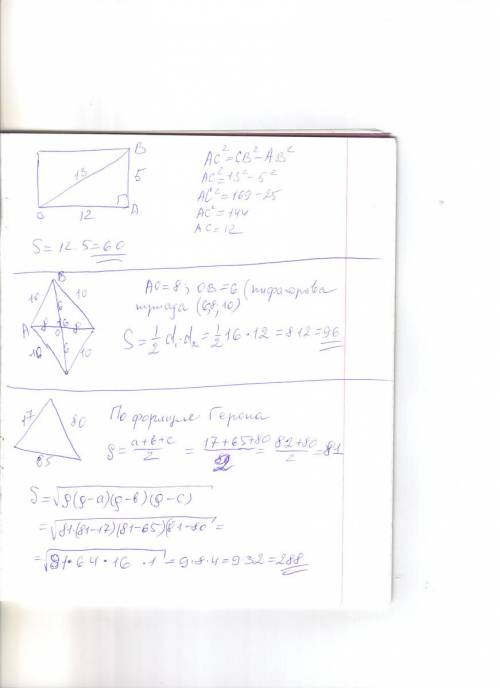 B
13
5
O
12
A
AC² = CB² - AB²
AC² = 13² - 5²
AC² = 169 - 25
AC² = 144
AC = 12
S = 12·5 = 60
B
10
10
6
A
8
16
8
O
10
6
10
AO = 8; OB = 6 (пифагорова
тройка (6,8,10)
S = 1/2 d₁·d₂ = 1/2 16·12 = 8·12 = 96
17
80
65
По формуле Герона
p = a+b+c/2 = 17+65+80/2 = 82+80/2 = 81
S = √p(p-a)(p-b)(p-c)
= √81·(81-17)(81-65)(81-80) =
= √81·64·16·1 = 9·8·4 = 9·32 = 288